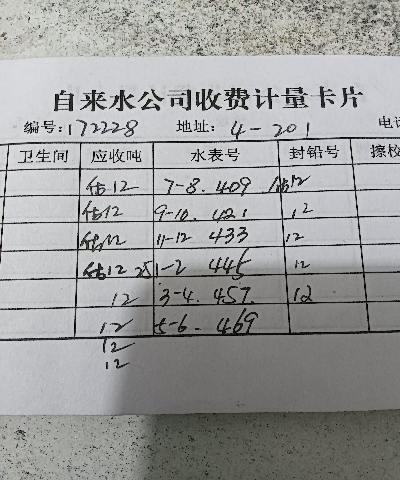 自来水公司收费计量卡片
编号: 172228 地址: 4-201 电话
卫生间 应收吨 水表号 封铅号 擦校
估12 7-8. 409 估12
估12 9-10. 421 12
估12 11-12 433 12
估12 25 1-2 445 12
12 3-4. 457. 12
12 5-6. 469
12
12